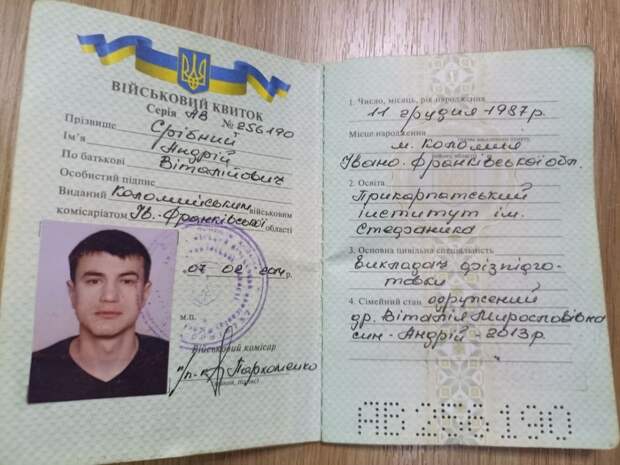 ВІЙСЬКОВИЙ КВИТОК
Серія АВ № 256190
Прізвище Срібний
Ім'я Андрій
По батькові Віталійович
Особистий підпис
Виданий Коломийським військовим
комісаріатом Ів.-Франківської області
07 02 2014 р.
М.П.
Військовий комісар
п/п-к Пархоменко
1. Число, місяць, рік народження
11 грудня 1987 р.
Місце народження
м. Коломия
Івано-Франківської обл.
2. Освіта
Прикарпатський
інститут ім.
Стефаника
3. Основна цивільна спеціальність
викладач фізпідго-
товки
4. Сімейний стан одружений
др. Віталія Мирославівна
син - Андрій - 2013 р
АВ 256190